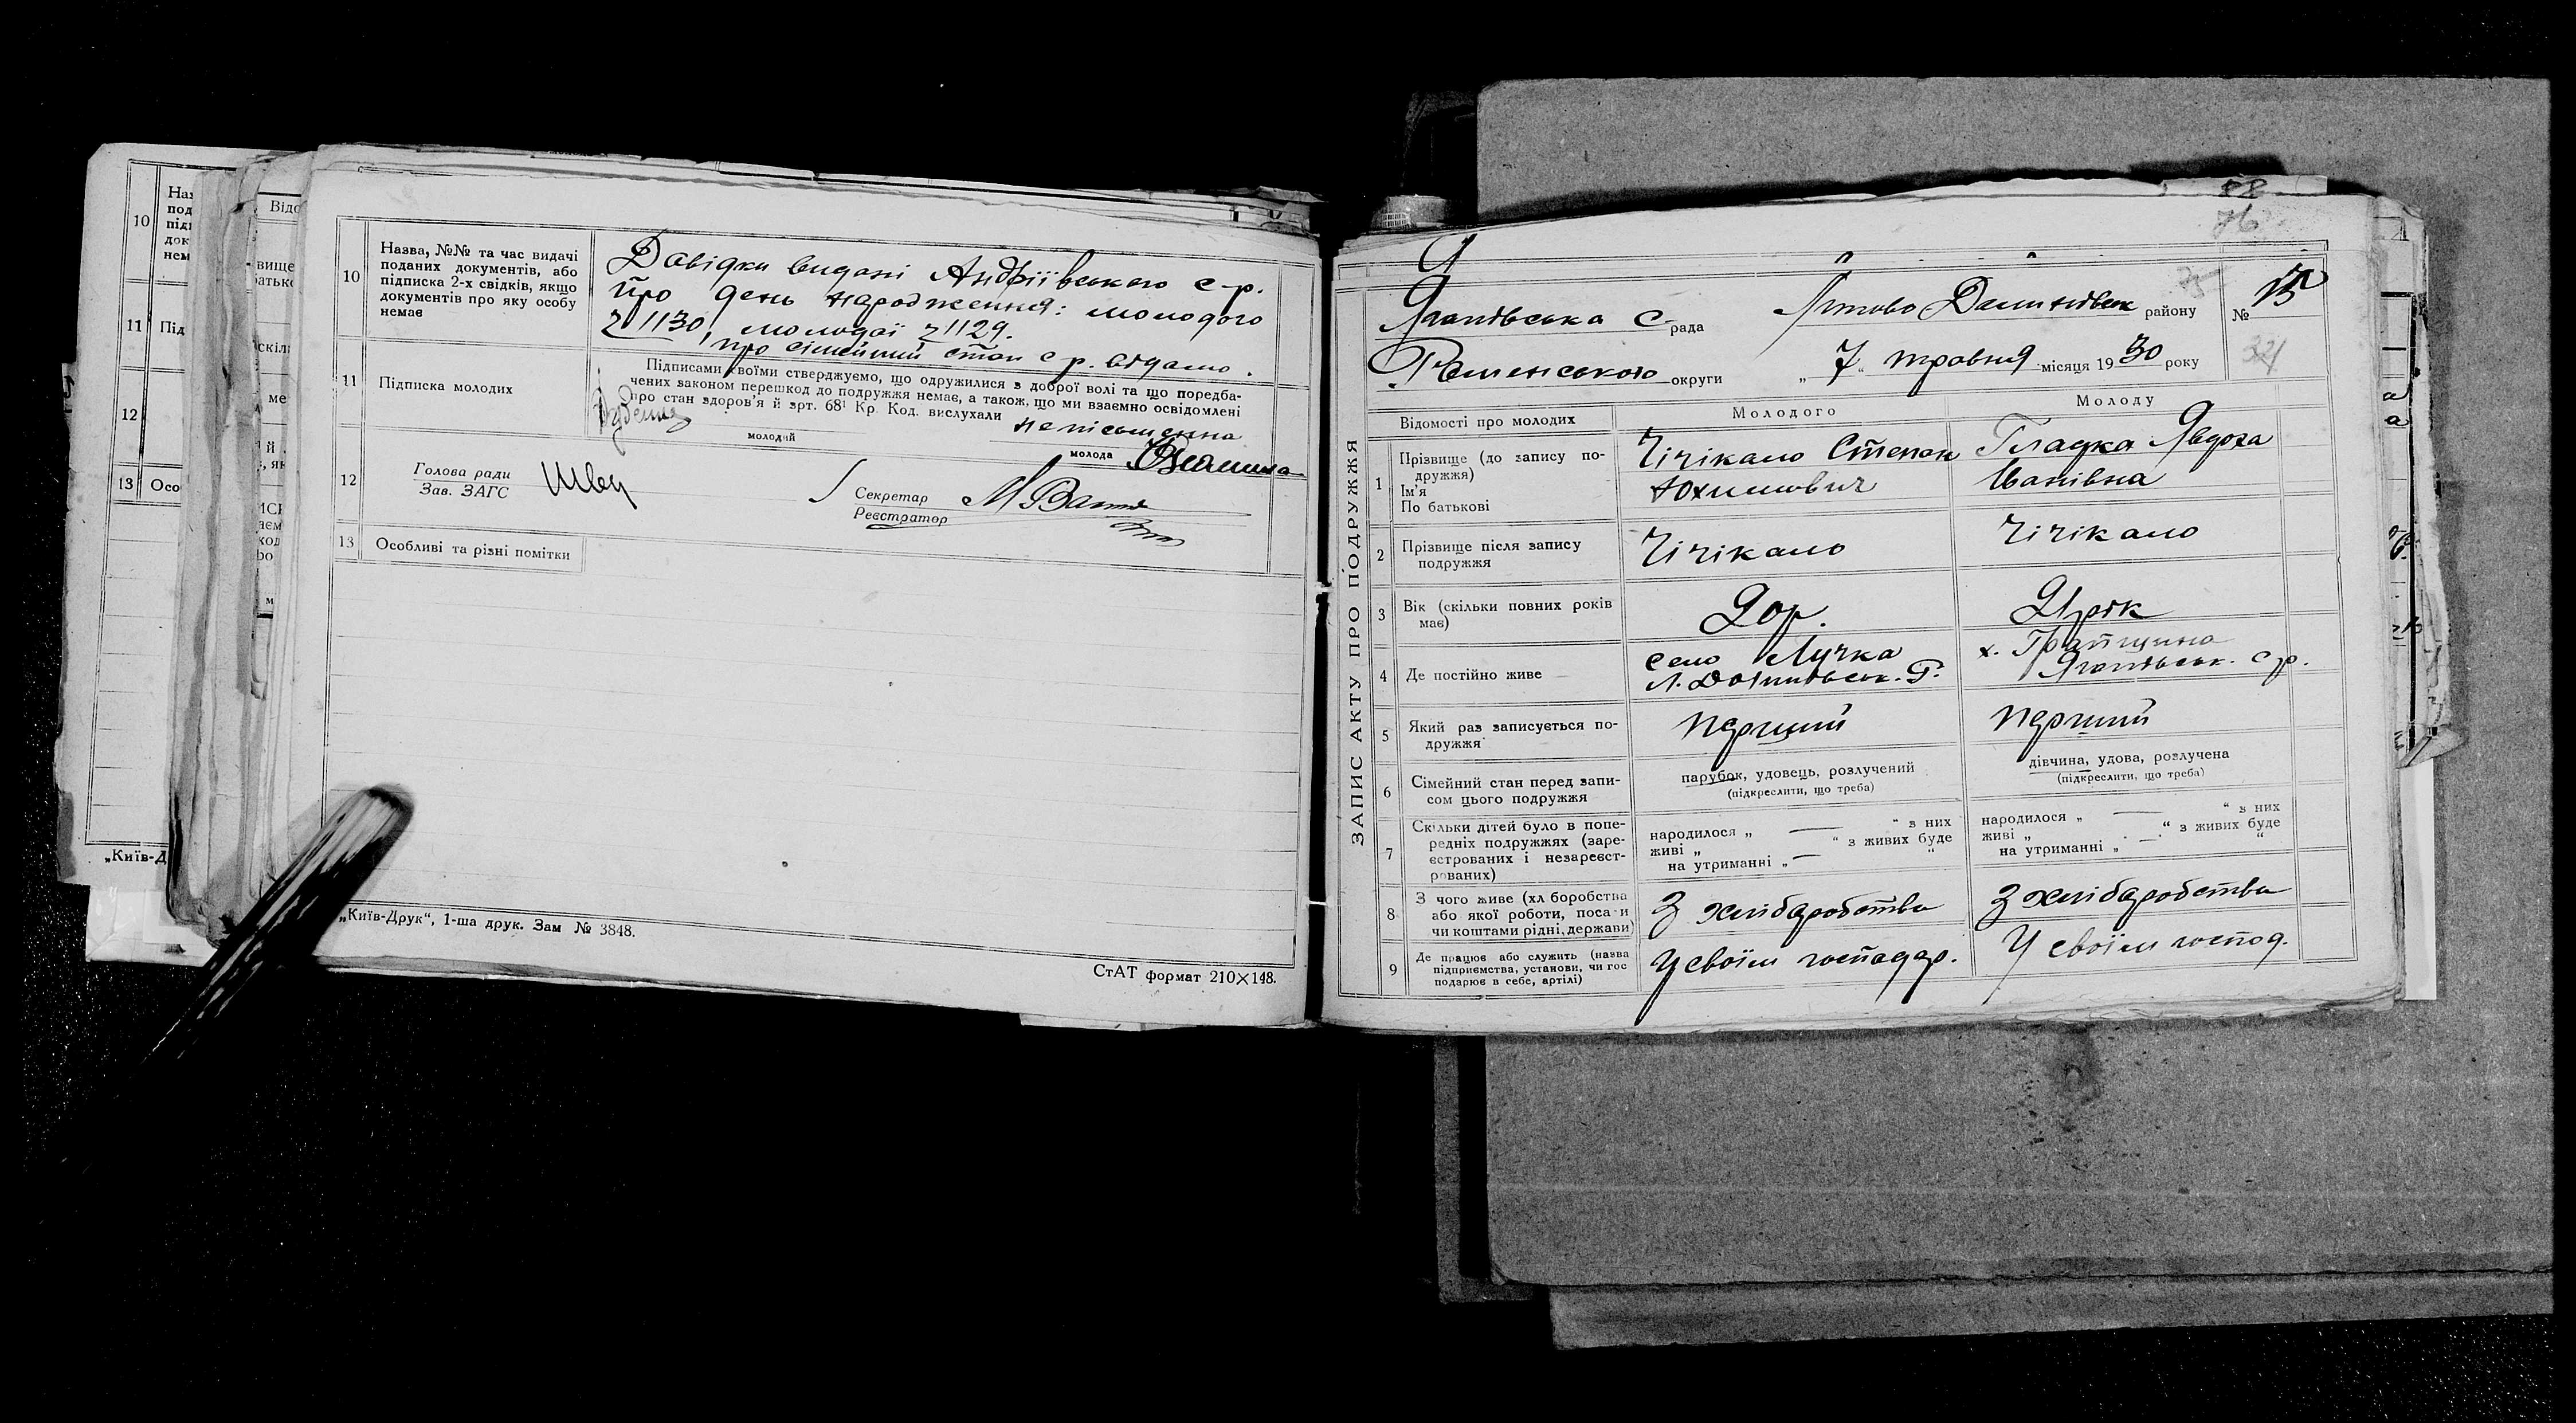 10
Назва, №№ та час видачі
поданих документів, або
підписка 2-х свідків, якщо
документів про яку особу
немає
Довідки видані Андріївською с-р.
про день народження: молодого
1130, молодої 1129.
про сімейний стан с р. видано.
11
Підписка молодих
Підписами своїми стверджуємо, що одружилися з доброї волі та що поредба-
чених законом перешкод до подружжя немає, а також, що ми взаємно освідомлені
про стан здоров'я й арт. 68¹ Кр. Код. вислухали
неписьменна
молодий
молода
12
Голова ради
Зав. ЗАГС
Швец
Секретар
Реєстратор
13
Особливі та різні помітки
„Київ-Друк“, 1-ша друк. Зам № 3848.
СтАТ формат 210×148.
10
11
Під
12
13
Осо
„Київ-Д
76
ЗАПИС АКТУ ПРО ПОДРУЖЖЯ
с-рада
району
№
Роменського округи
„ 7 “ травня місяця 1930 року
Відомості про молодих
Молодого
Молоду
1
Прізвище (до запису по-
дружжя)
Ім'я
По батькові
Чічікало Степан
Юхимович
Гладка Явдоха
Іванівна
2
Прізвище після запису
подружжя
Чічікало
Чічікало
3
Вік (скільки повних років
має)
20р.
21рік
4
Де постійно живе
село Лучка
с р.
5
Який раз записується по-
дружжя
перший
перший
6
Сімейний стан перед запи-
сом цього подружжя
парубок, удовець, розлучений
(підкреслити, що треба)
дівчина, удова, розлучена
(підкреслити, що треба)
7
Скільки дітей було в попе-
редніх подружжях (заре-
єстрованих і незареєст-
рованих)
народилося „ — “ з них
живі „ “ з живих буде
на утриманні „ — “
народилося „ — “ з них
живі „ “ з живих буде
на утриманні „ — “
8
З чого живе (хл боробства
або якої роботи, поса и
чи коштами рідні, держави)
З хліборобства
З хліборобства
9
Де працює або служить (назва
підприємства, установи, чи гос
подарює в себе, артілі)
У своїм господар.
У своїм господ.